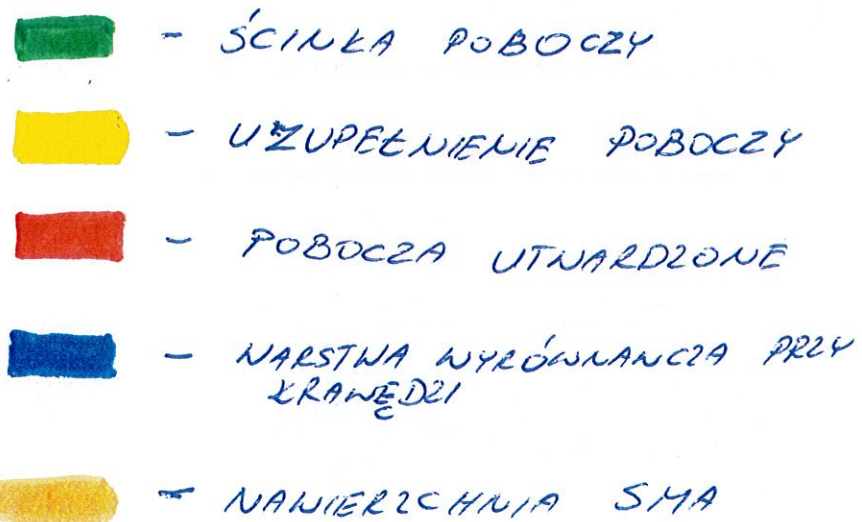 - ŚCINKA POBOCZY
- UZUPEŁNIENIE POBOCZY
- POBOCZA UTWARDZONE
- WARSTWA WYRÓWNANCZA PRZY
KRAWĘDZI
- NAWIERZCHNIA SMA